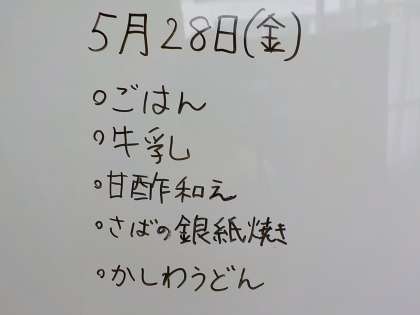 5月28日(金)
○ごはん
○牛乳
○甘酢和え
○さばの銀紙焼き
○かしわうどん